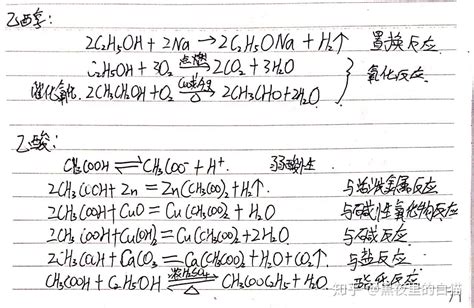 乙醇:
2C₂H₅OH + 2Na → 2C₂H₅ONa + H₂↑ 置换反应
C₂H₅OH + 3O₂ 点燃→ 2CO₂ + 3H₂O } 氧化反应
催化氧化. 2CH₃CH₂OH + O₂ Cu或Ag→△ 2CH₃CHO + 2H₂O
乙酸:
CH₃COOH ⇌ CH₃COO⁻ + H⁺ 弱酸性
2CH₃COOH + Zn = Zn(CH₃COO)₂ + H₂↑ 与活泼金属反应
2CH₃COOH + CuO = Cu(CH₃COO)₂ + H₂O 与碱性氧化物反应
2CH₃COOH + Cu(OH)₂ = Cu(CH₃COO)₂ + 2H₂O 与碱反应
2CH₃COOH + CaCO₃ = Ca(CH₃COO)₂ + H₂O + CO₂↑ 与盐反应
CH₃COOH + C₂H₅OH 浓H₂SO₄⇌△ CH₃COOC₂H₅ + H₂O 酯化反应
知乎 @黑夜里的白猫